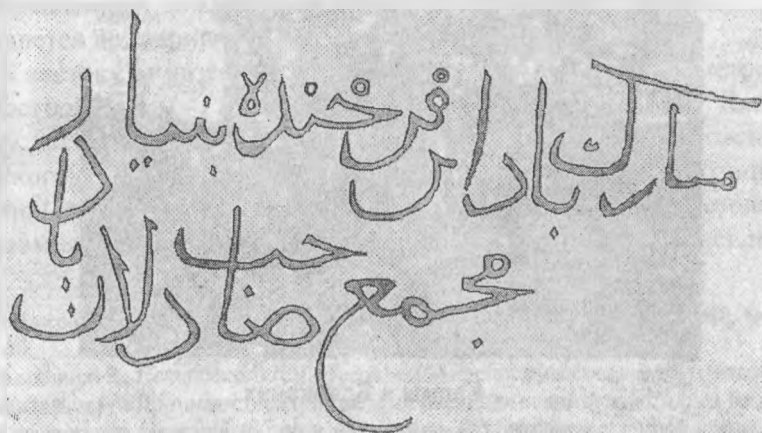 مبارك باد این فرخنده بنیاد
مجمع صاحب دلان باد